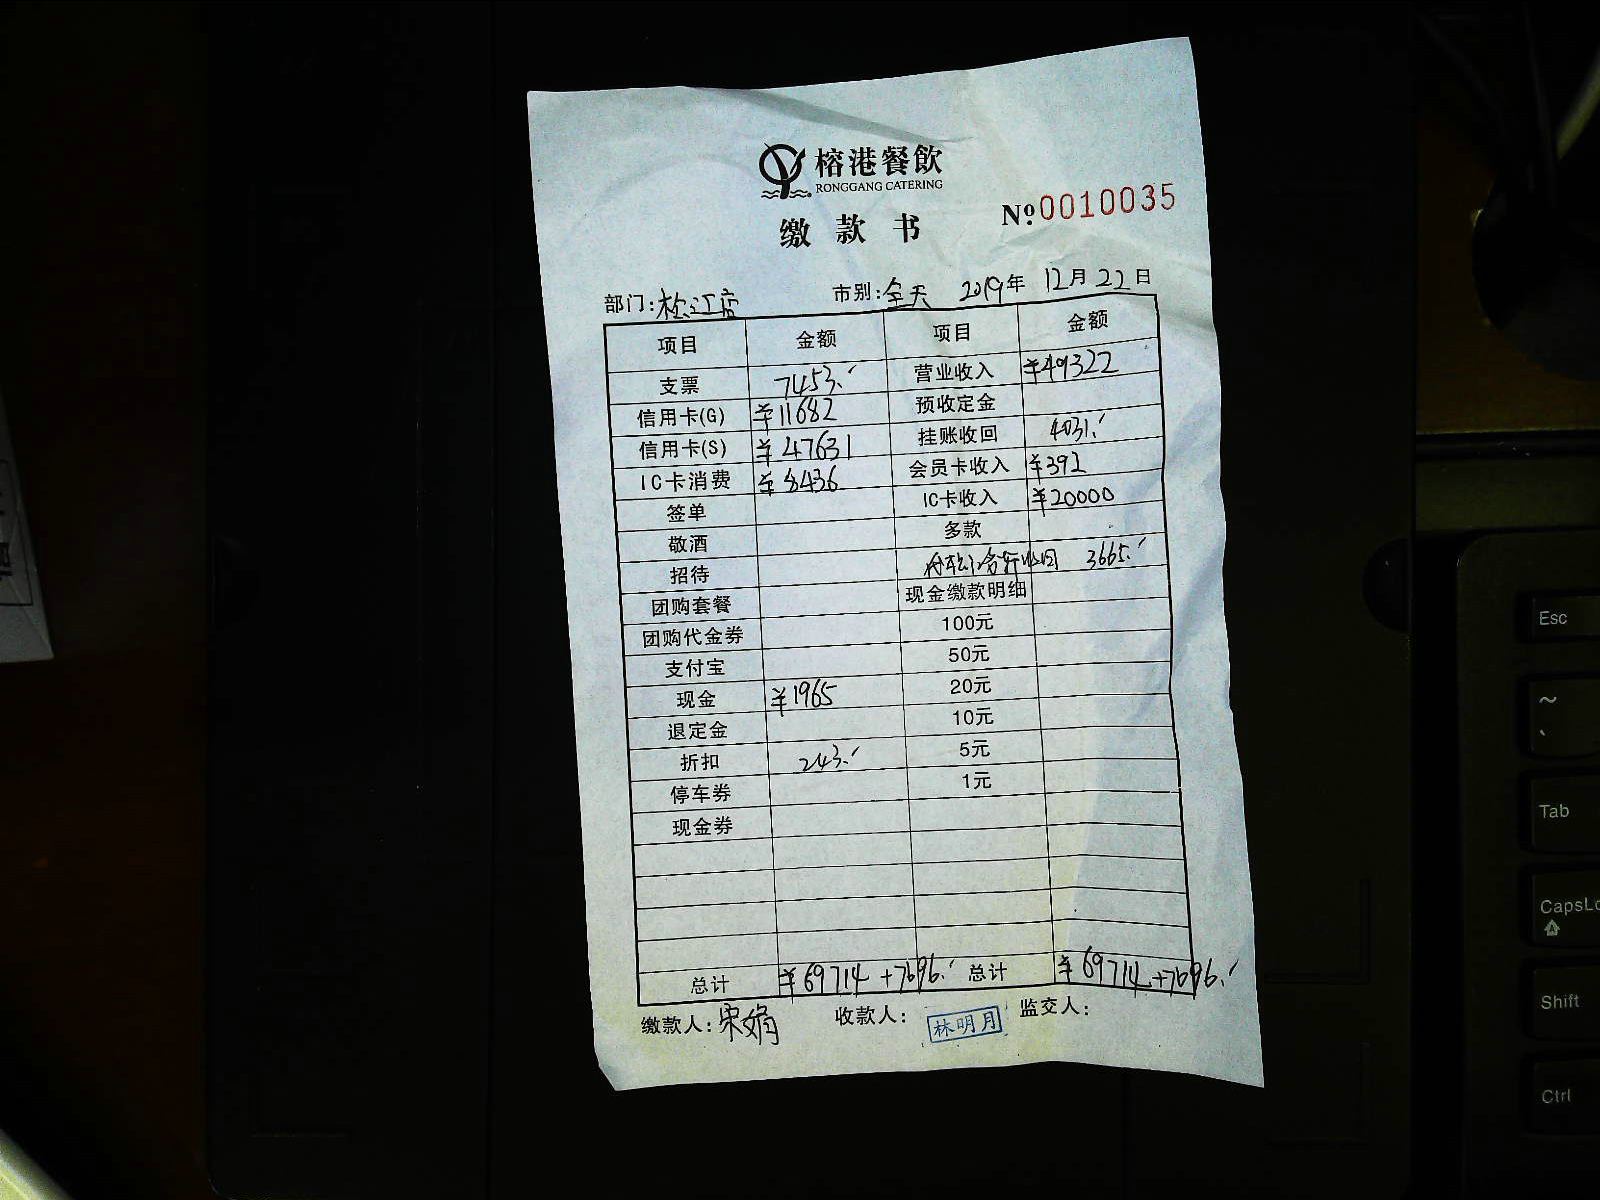 榕港餐飲
RONGGANG CATERING
缴款书 №0010035
部门:松江店 市别:全天 2019年12月22日
项目 金额 项目 金额
支票 7453. 营业收入 ¥49322
信用卡(G) ¥11682 预收定金
信用卡(S) ¥47631 挂账收回 4031.
IC卡消费 ¥8436 会员卡收入 ¥392
签单 IC卡收入 ¥20000
敬酒 多款
招待 3665.
团购套餐 现金缴款明细
团购代金券 100元
支付宝 50元
现金 ¥1965 20元
退定金 10元
折扣 243. 5元
停车券 1元
现金券
总计 ¥69714+7696. 总计 ¥69714+7696.
缴款人:宋娟 收款人: 林明月 监交人:
Esc
~
Tab
CapsLo
Shift
Ctrl